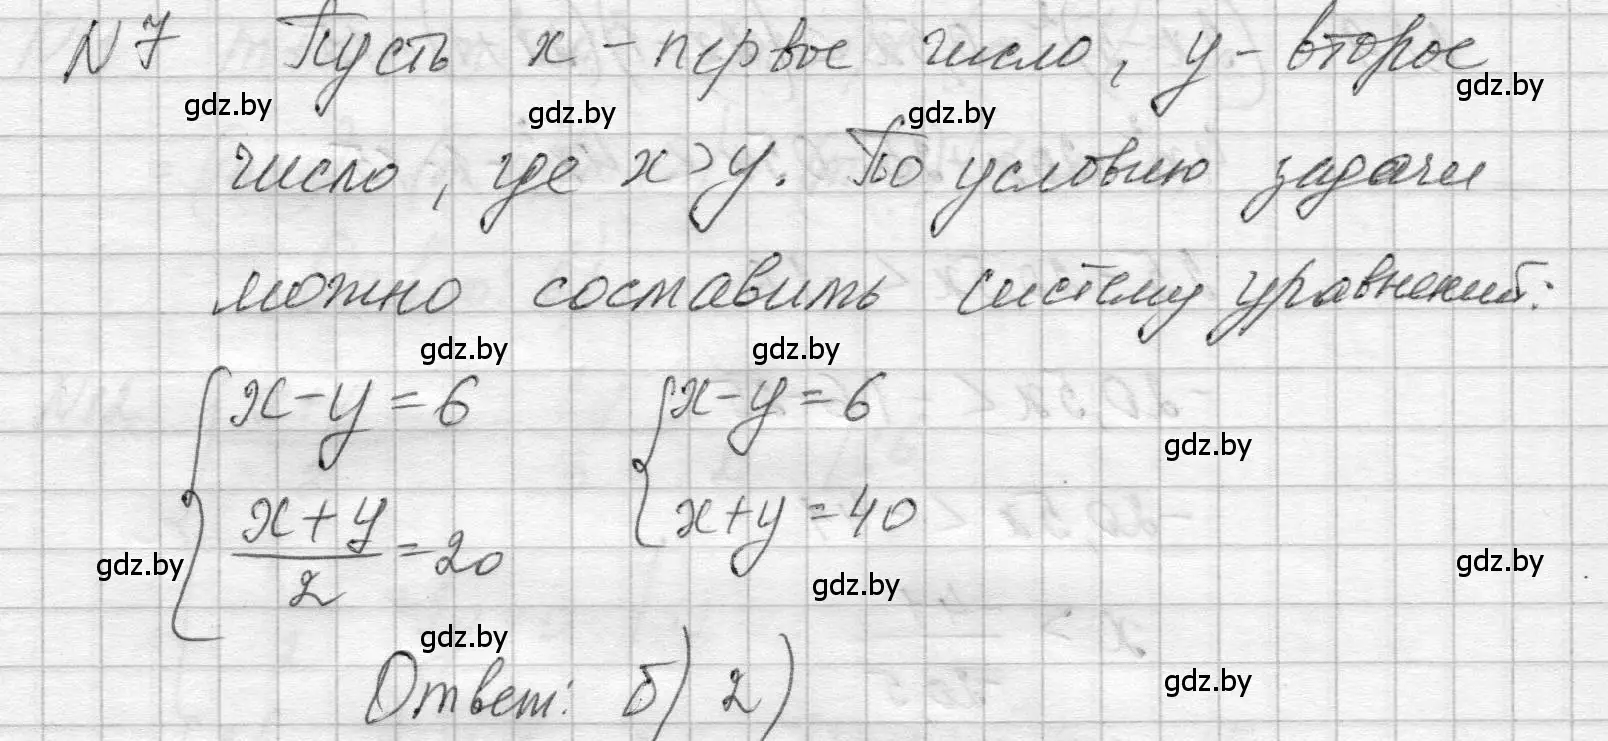 N7 Пусть x - первое число, y - второе
gdz.by gdz.by gdz.by gdz.by
число, где x > y. По условию задачи
можно составить систему уравнений:
gdz.by gdz.by
x - y = 6 x - y = 6
gdz.by
(x + y)/2 = 20 x + y = 40
gdz.by gdz.by gdz.by
gdz.by
Ответ: б) 2)
gdz.by